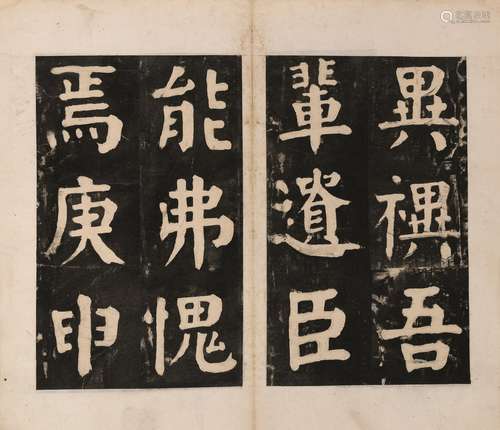 異禩吾
輩遺臣
能弗愧
焉庚申